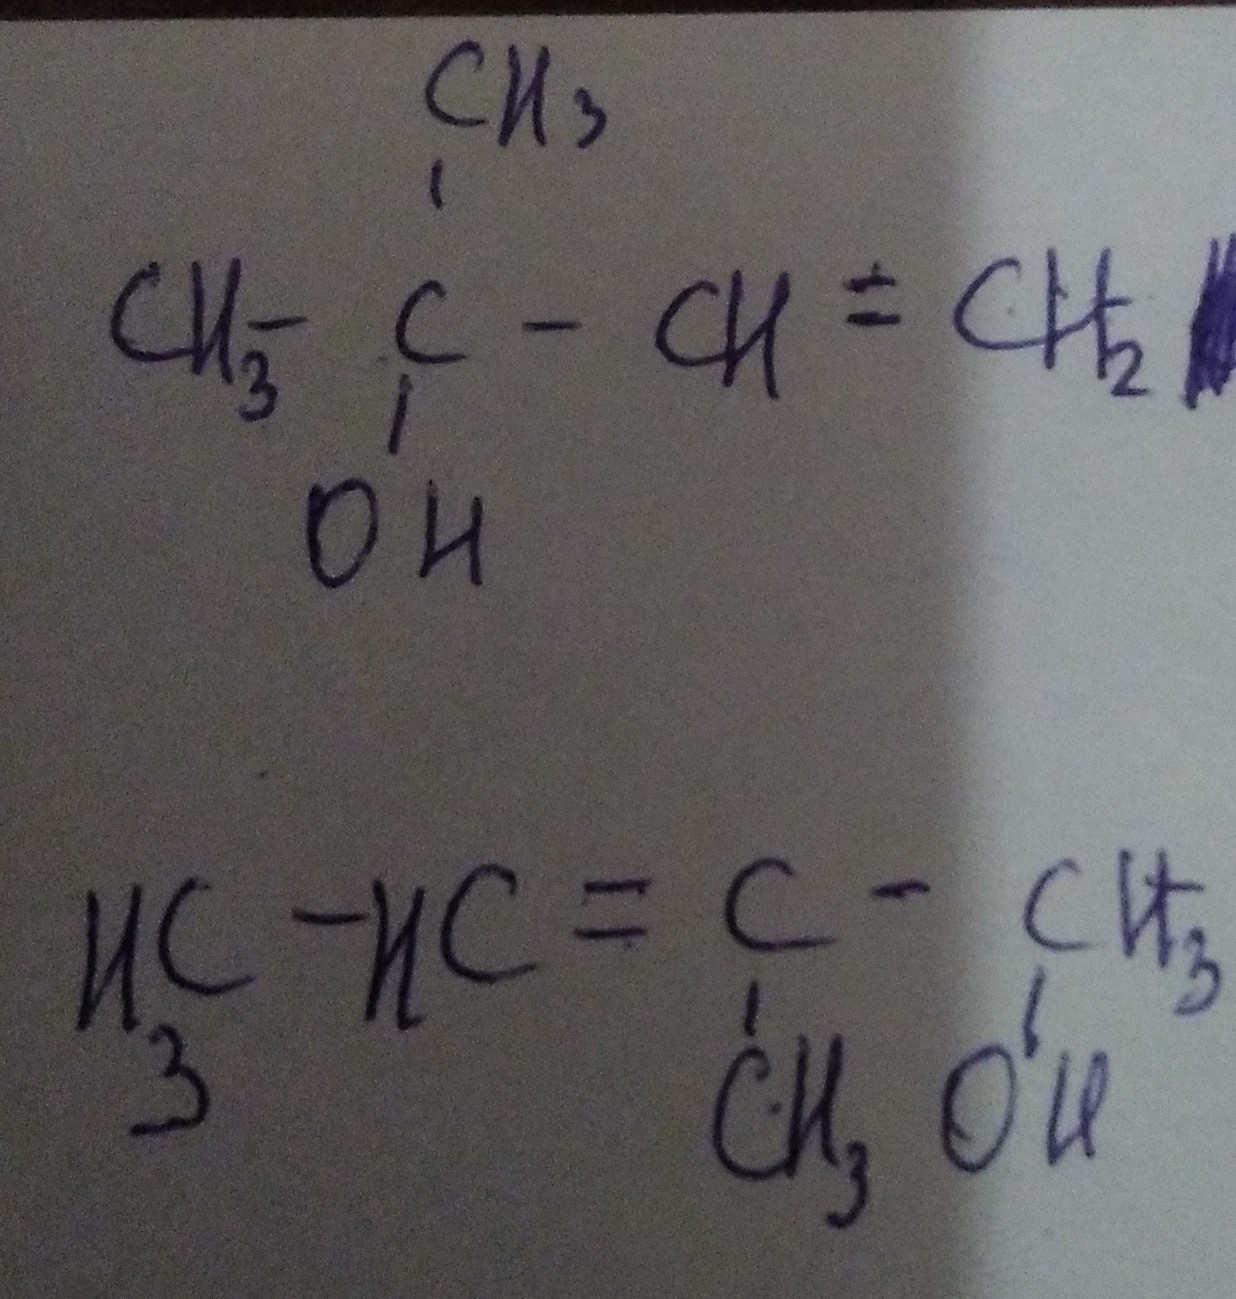 CH3
CH3 - C - CH = CH2
OH
H3C - HC = C - CH3
CH3 OH